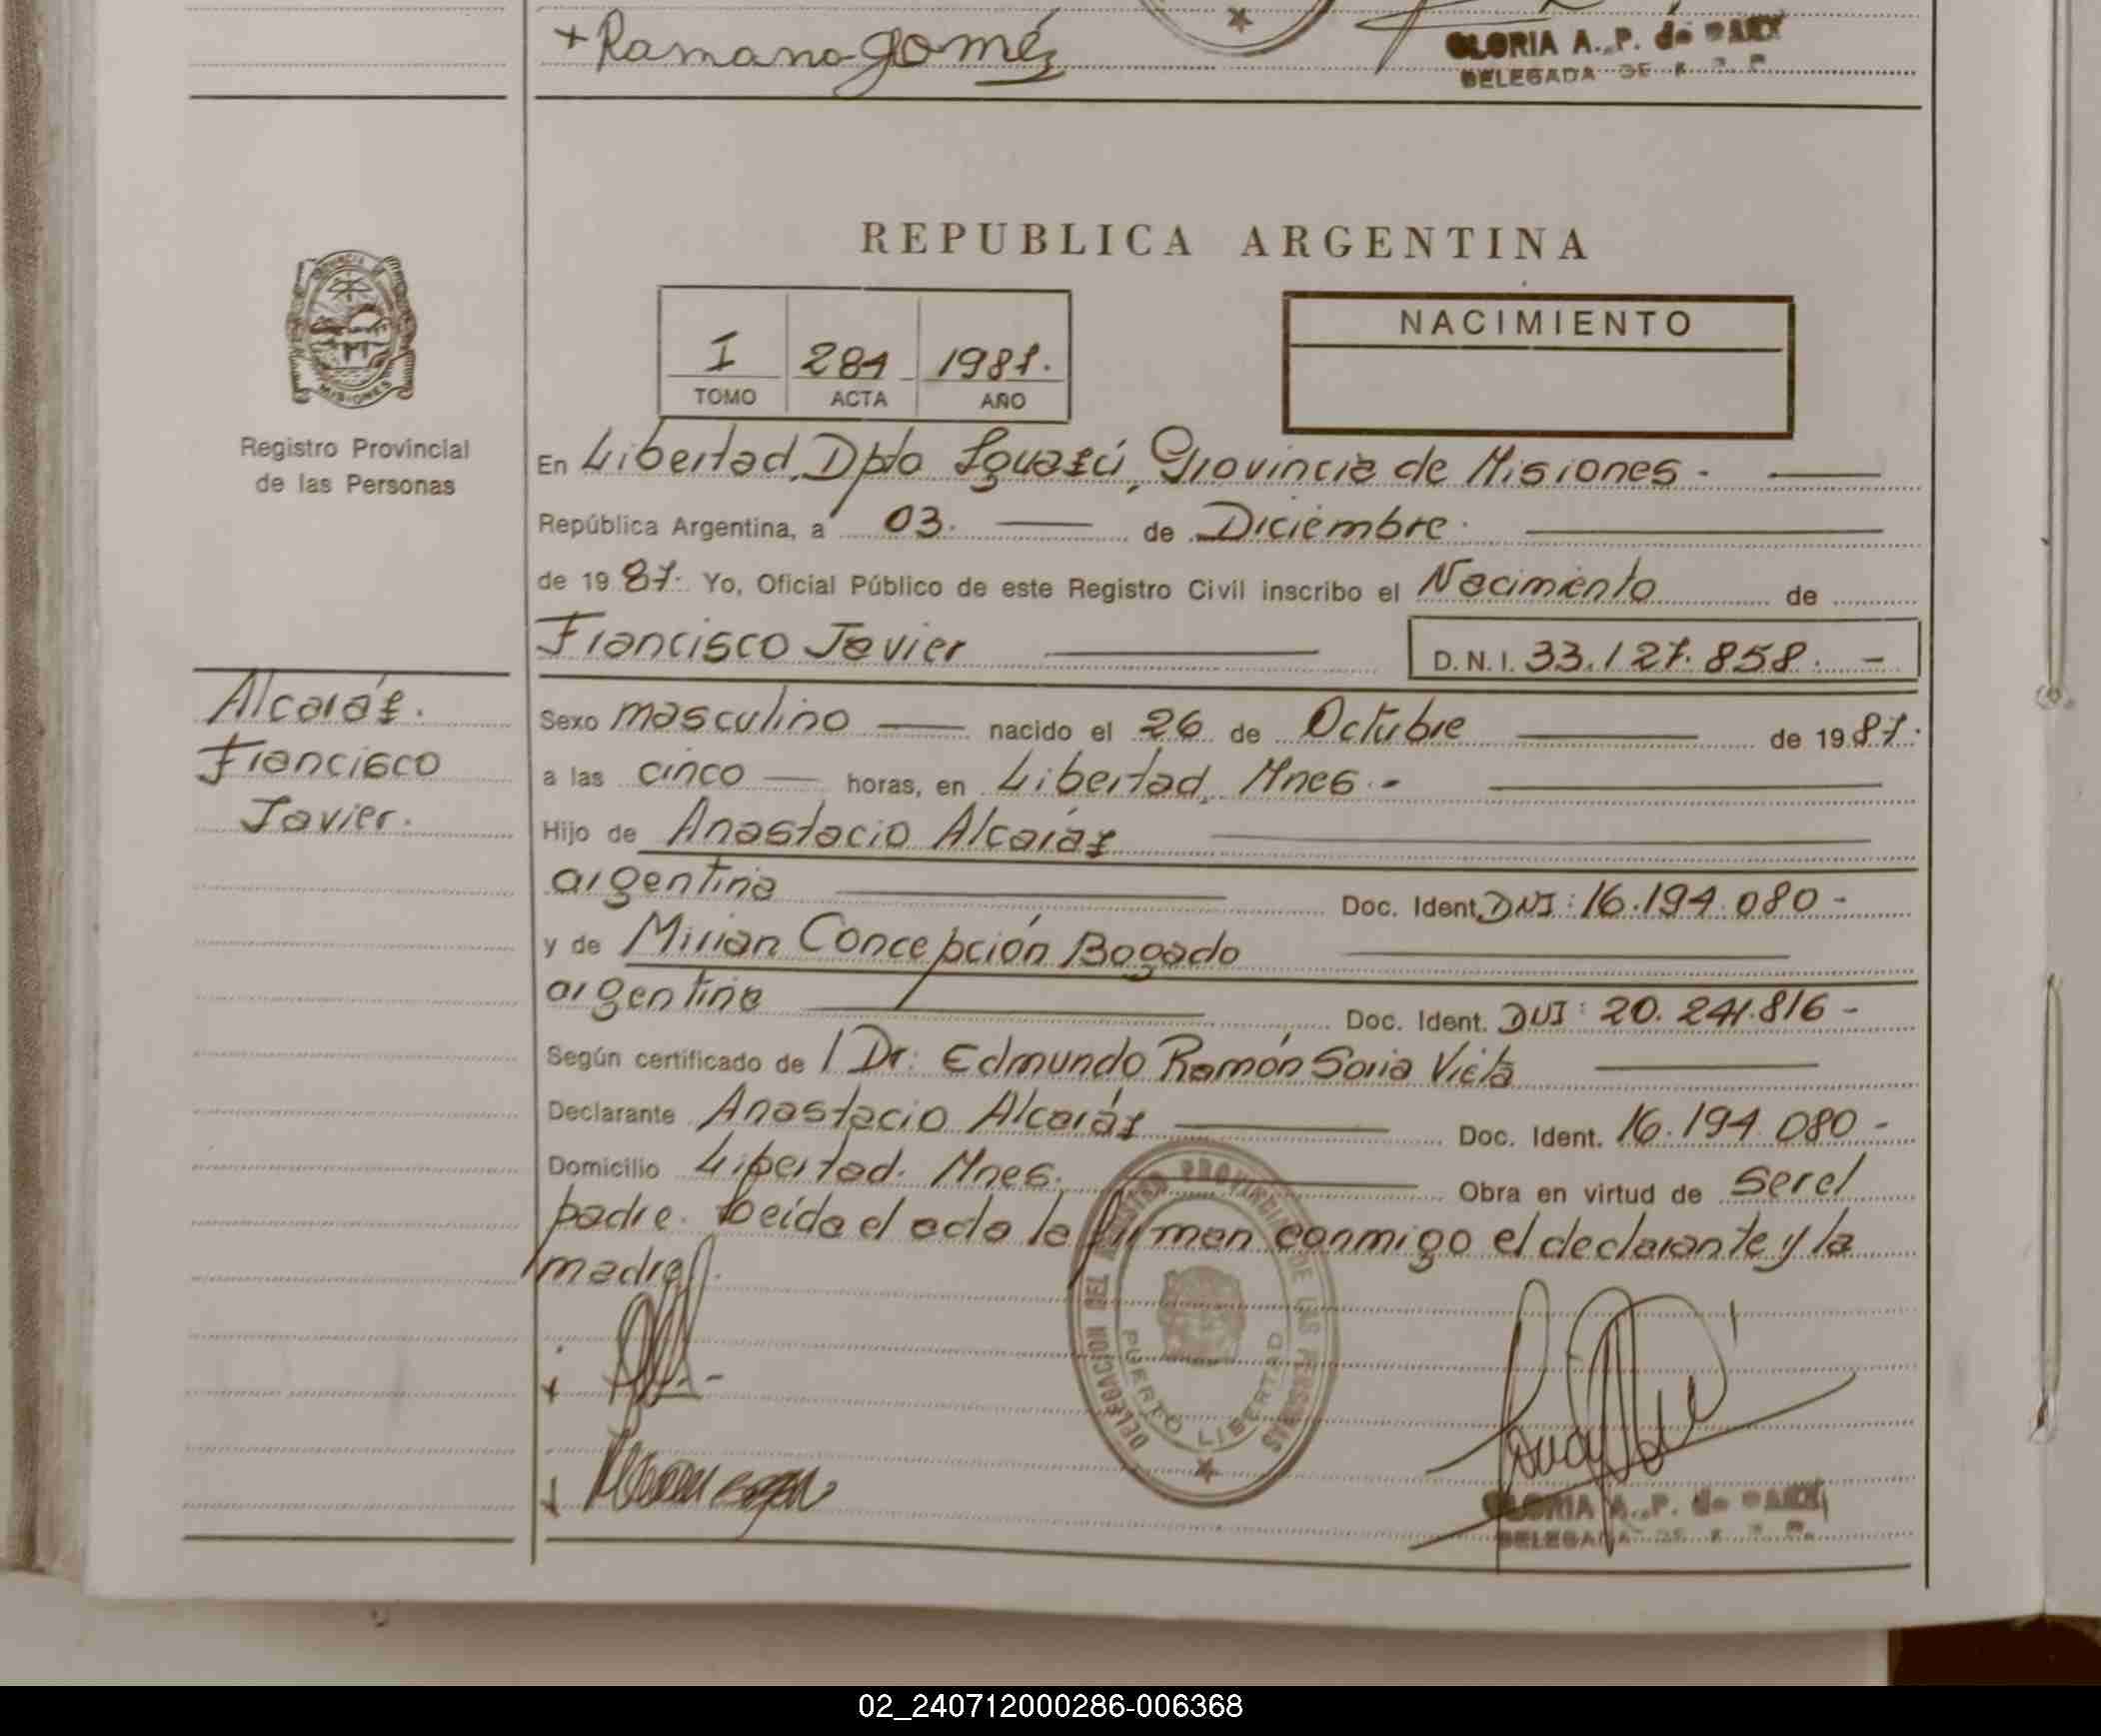 + Ramana gomez
GLORIA A. P. de
DELEGADA DE
REPUBLICA ARGENTINA
PROVINCIA
MISIONES
Registro Provincial
de las Personas
I 281 1987.
TOMO ACTA AÑO
NACIMIENTO
En Libertad, Dpto Iguazú, Provincia de Misiones.-
República Argentina, a 03. de Diciembre.
de 19 87. Yo, Oficial Público de este Registro Civil inscribo el Nacimiento de
Francisco Javier D.N.I. 33.127.858. -
Alcaráz.
Francisco
Javier.
Sexo masculino nacido el 26 de Octubre de 19 87.
a las cinco horas, en Libertad, Mnes.-
Hijo de Anastacio Alcaráz
argentina Doc. Ident. DNI: 16.194.080-
y de Mirian Concepción Bogado
argentina Doc. Ident. DNI: 20.241.816-
Según certificado de / Dr. Edmundo Ramón Soria Vieta
Declarante Anastacio Alcaráz Doc. Ident. 16.194.080-
Domicilio Libertad. Mnes. Obra en virtud de ser el
padre. Leída el acta la firman conmigo el declarante y la
madre.
DELEGACION DEL REGISTRO PROVINCIAL DE LAS PERSONAS
PUERTO LIBERTAD
GLORIA A. P. de
DELEGADA DE
02_240712000286-006368